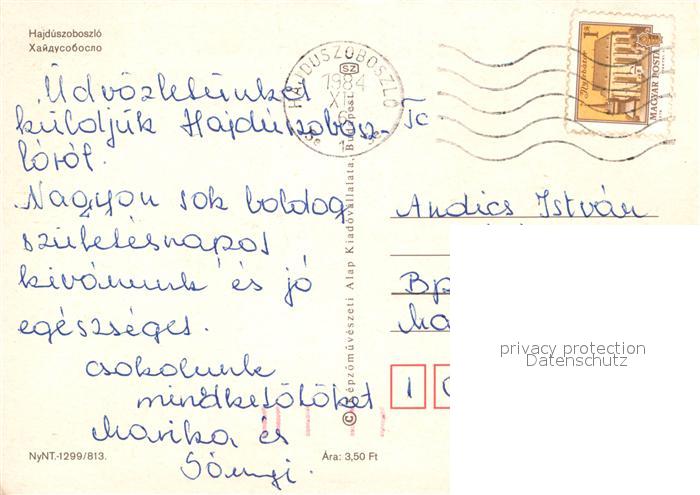 Hajdúszoboszló
Хайдусобосло
Üdvözletünket
küldjük Hajdúszobosz-
lóról.
Nagyon sok boldog
születésnapot
kívánunk és jó
egészséget.
csokolunk
mindkettőtöket
Marika és
NyNT.-1299/813.
Ára: 3,50 Ft
© Képzőművészeti Alap Kiadóvállalata, Budapest
HAJDUSZOBOSZLO
SZ
1984
XI
6
MAGYAR POSTA
Andics István
Bp
1
privacy protection
Datenschutz